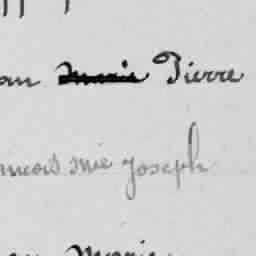 an Marie Pierre
ncois Mie Joseph
Marie